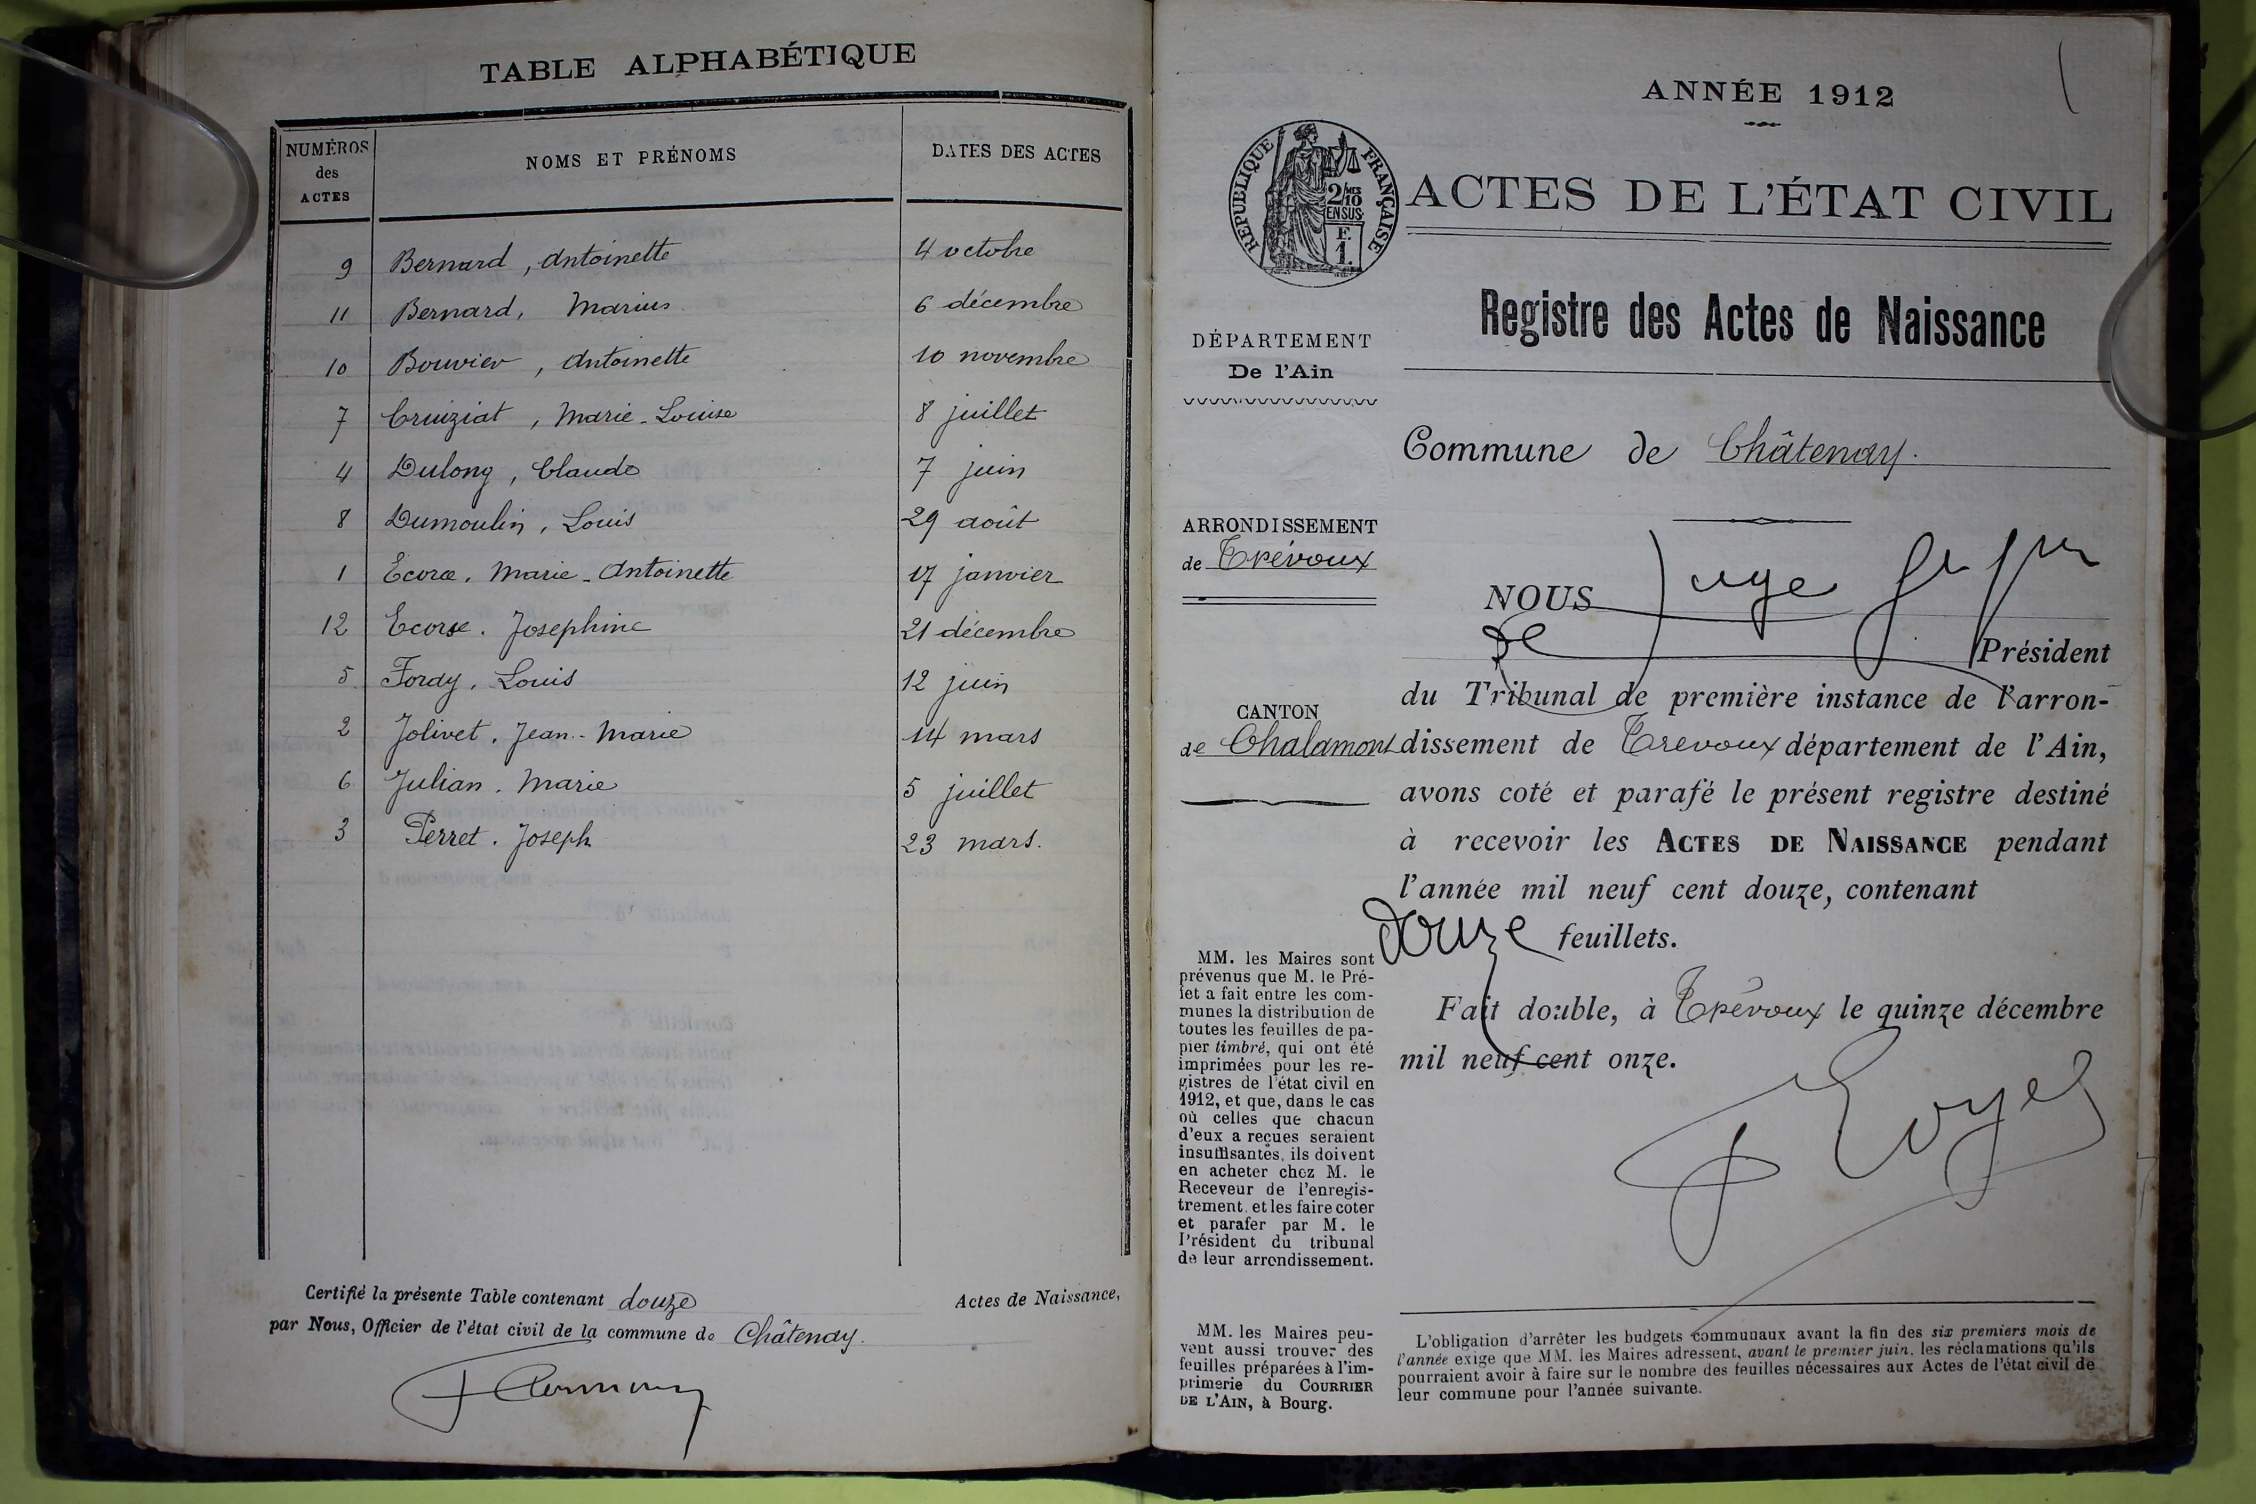 TABLE ALPHABÉTIQUE
NUMÉROS des ACTES
NOMS ET PRÉNOMS
DATES DES ACTES
9 Bernard, Antoinette 4 octobre
11 Bernard, Marius 6 décembre
10 Bouvier, Antoinette 10 novembre
7 Cruiziat, Marie-Louise 8 juillet
4 Dulong, Claude 7 juin
8 Dumoulin, Louis 29 août
1 Marie-Antoinette 17 janvier
12 Ecorse. Josephine 21 décembre
5 Fordy, Louis 12 juin
2 Jolivet. Jean-Marie 14 mars
6 Julian. Marie 5 juillet
3 Perret. Joseph 23 mars.
Certifié la présente Table contenant douze Actes de Naissance,
par Nous, Officier de l'état civil de la commune de Châtenay.
ANNÉE 1912
RÉPUBLIQUE FRANÇAISE
2/10 MES
EN SUS
F.
1.
ACTES DE L'ÉTAT CIVIL
Registre des Actes de Naissance
DÉPARTEMENT
De l'Ain
Commune de Châtenay.
ARRONDISSEMENT
de Trévoux
CANTON
de Chalamont
NOUS juge
Président
du Tribunal de première instance de l'arron-
dissement de Trevoux département de l'Ain,
avons coté et parafé le présent registre destiné
à recevoir les ACTES DE NAISSANCE pendant
l'année mil neuf cent douze, contenant
douze feuillets.
Fait double, à Trévoux le quinze décembre
mil neuf cent onze.
MM. les Maires sont
prévenus que M. le Pré-
fet a fait entre les com-
munes la distribution de
toutes les feuilles de pa-
pier timbré, qui ont été
imprimées pour les re-
gistres de l'état civil en
1912, et que, dans le cas
où celles que chacun
d'eux a reçues seraient
insuffisantes, ils doivent
en acheter chez M. le
Receveur de l'enregis-
trement, et les faire coter
et parafer par M. le
Président du tribunal
de leur arrondissement.
MM. les Maires peu-
vent aussi trouver des
feuilles préparées à l'im-
primerie du COURRIER
DE L'AIN, à Bourg.
L'obligation d'arrêter les budgets communaux avant la fin des six premiers mois de
l'année exige que MM. les Maires adressent, avant le premier juin, les réclamations qu'ils
pourraient avoir à faire sur le nombre des feuilles nécessaires aux Actes de l'état civil de
leur commune pour l'année suivante.